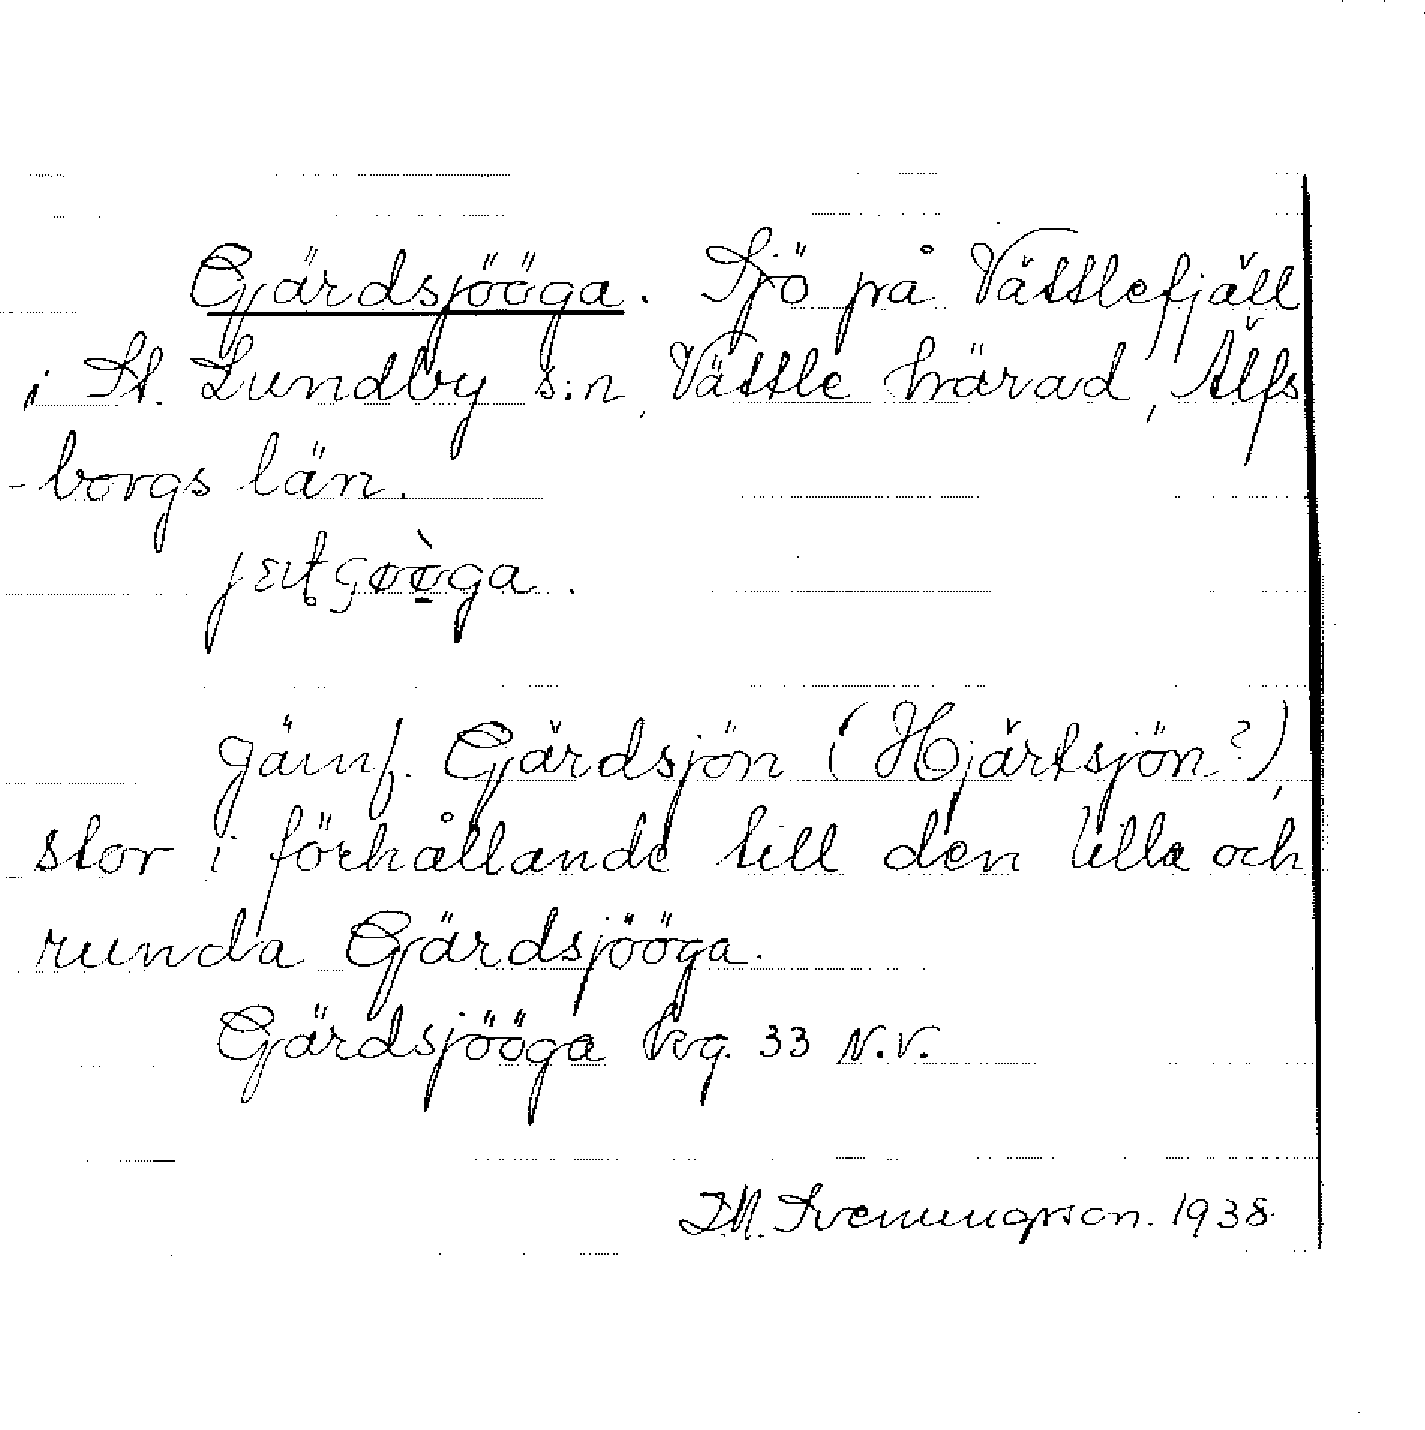 Gärdsjööga. Sjö på Vättlefjäll
i St. Lundby s:n, Vättle härad, Älfs
-borgs län.
Jämf. Gärdsjön (Hjärtsjön?),
stor i förhållande till den lilla och
runda Gärdsjööga.
Gärdsjööga kg. 33 N.V.
Svenungsson. 1938